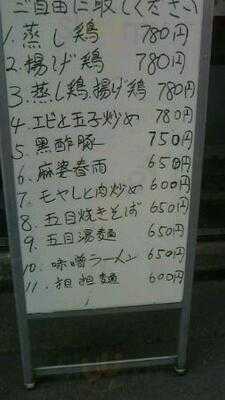 ご自由に取しください
1. 蒸し鶏 780円
2. 揚げ鶏 780円
3. 蒸し鶏,揚げ鶏 780円
4. エビと玉子炒め 780円
5 黒酢豚 750円
6. 麻婆春雨 650円
7. モヤしと肉炒め 600円
8. 五目焼きそば 650円
9. 五目湯麺 650円
10. 味噌ラーメン 650円
11. 担担麺 600円